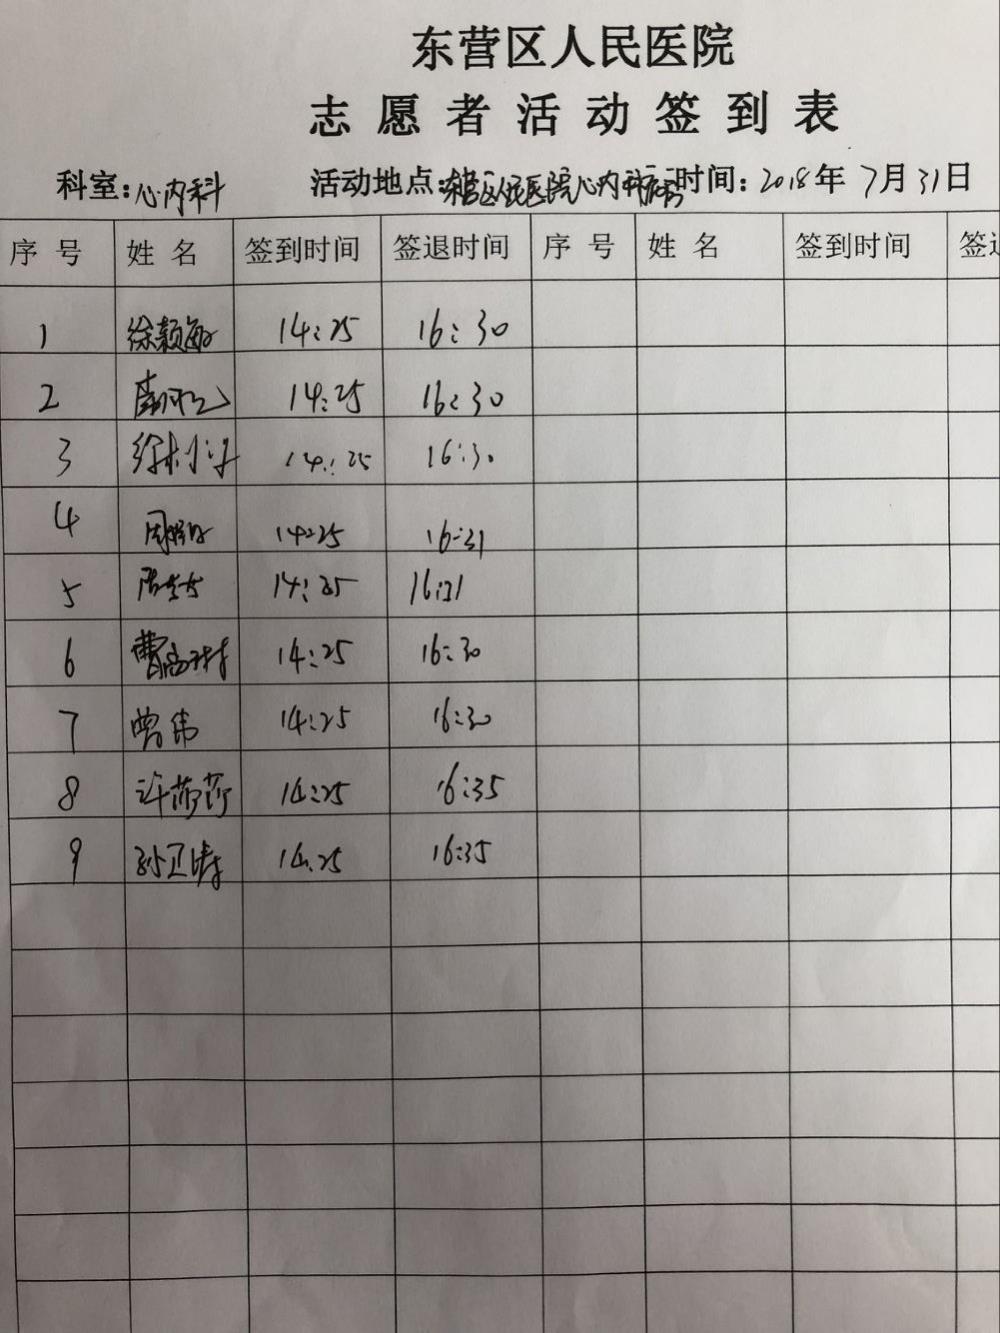 东营区人民医院
志愿者活动签到表
科室：心内科 活动地点：东营区人民医院心内科病房 时间：2018年7月31日
序号 姓名 签到时间 签退时间 序号 姓名 签到时间 签
1 徐颖敏 14:25 16:30
2 14:25 16:30
3 14:25 16:30
4 14:25 16:31
5 14:25 16:31
6 曹 14:25 16:30
7 曾伟 14:25 16:30
8 许莎莎 14:25 16:35
9 孙卫涛 14:25 16:35